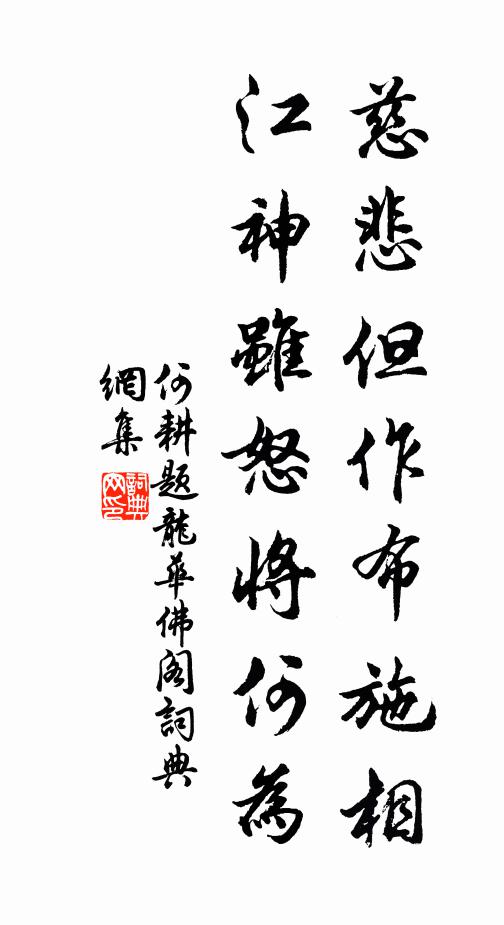 慈悲但作布施相
江神雖怒將何為
何耕題龍華佛閣詞典
網集
詞典
网印